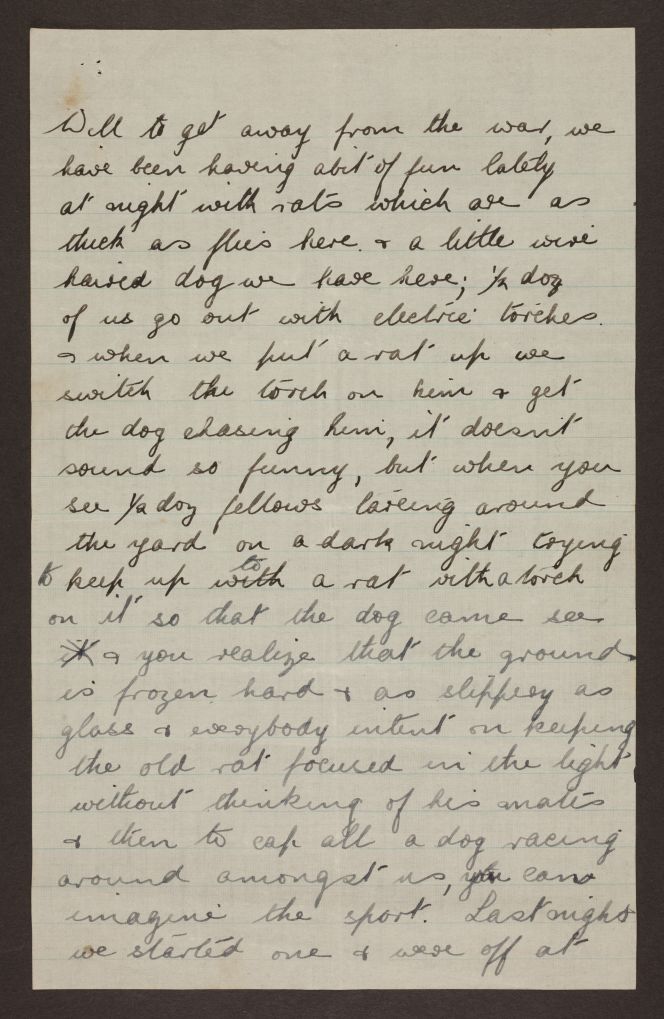 Well to get away from the war, we
have been having abit of fun lately
at night with rats which are as
thick as flies here. & a little wire
haired dog we have here; 1/2 doz
of us go out with electric torches.
& when we put a rat up we
switch the torch on him & get
the dog chasing him, it doesn't
sound so funny, but when you
see 1/2 doz fellows careing around
the yard on a dark night trying
to keep up with a rat with a torch
on it so that the dog came see
it & you realize that the ground
is frozen hard & as slippery as
glass & everybody intent on keeping
the old rat focused in the light
without thinking of his mates
& then to cap all a dog racing
around amongst us, you can
imagine the sport. Last night
we started one & were off at